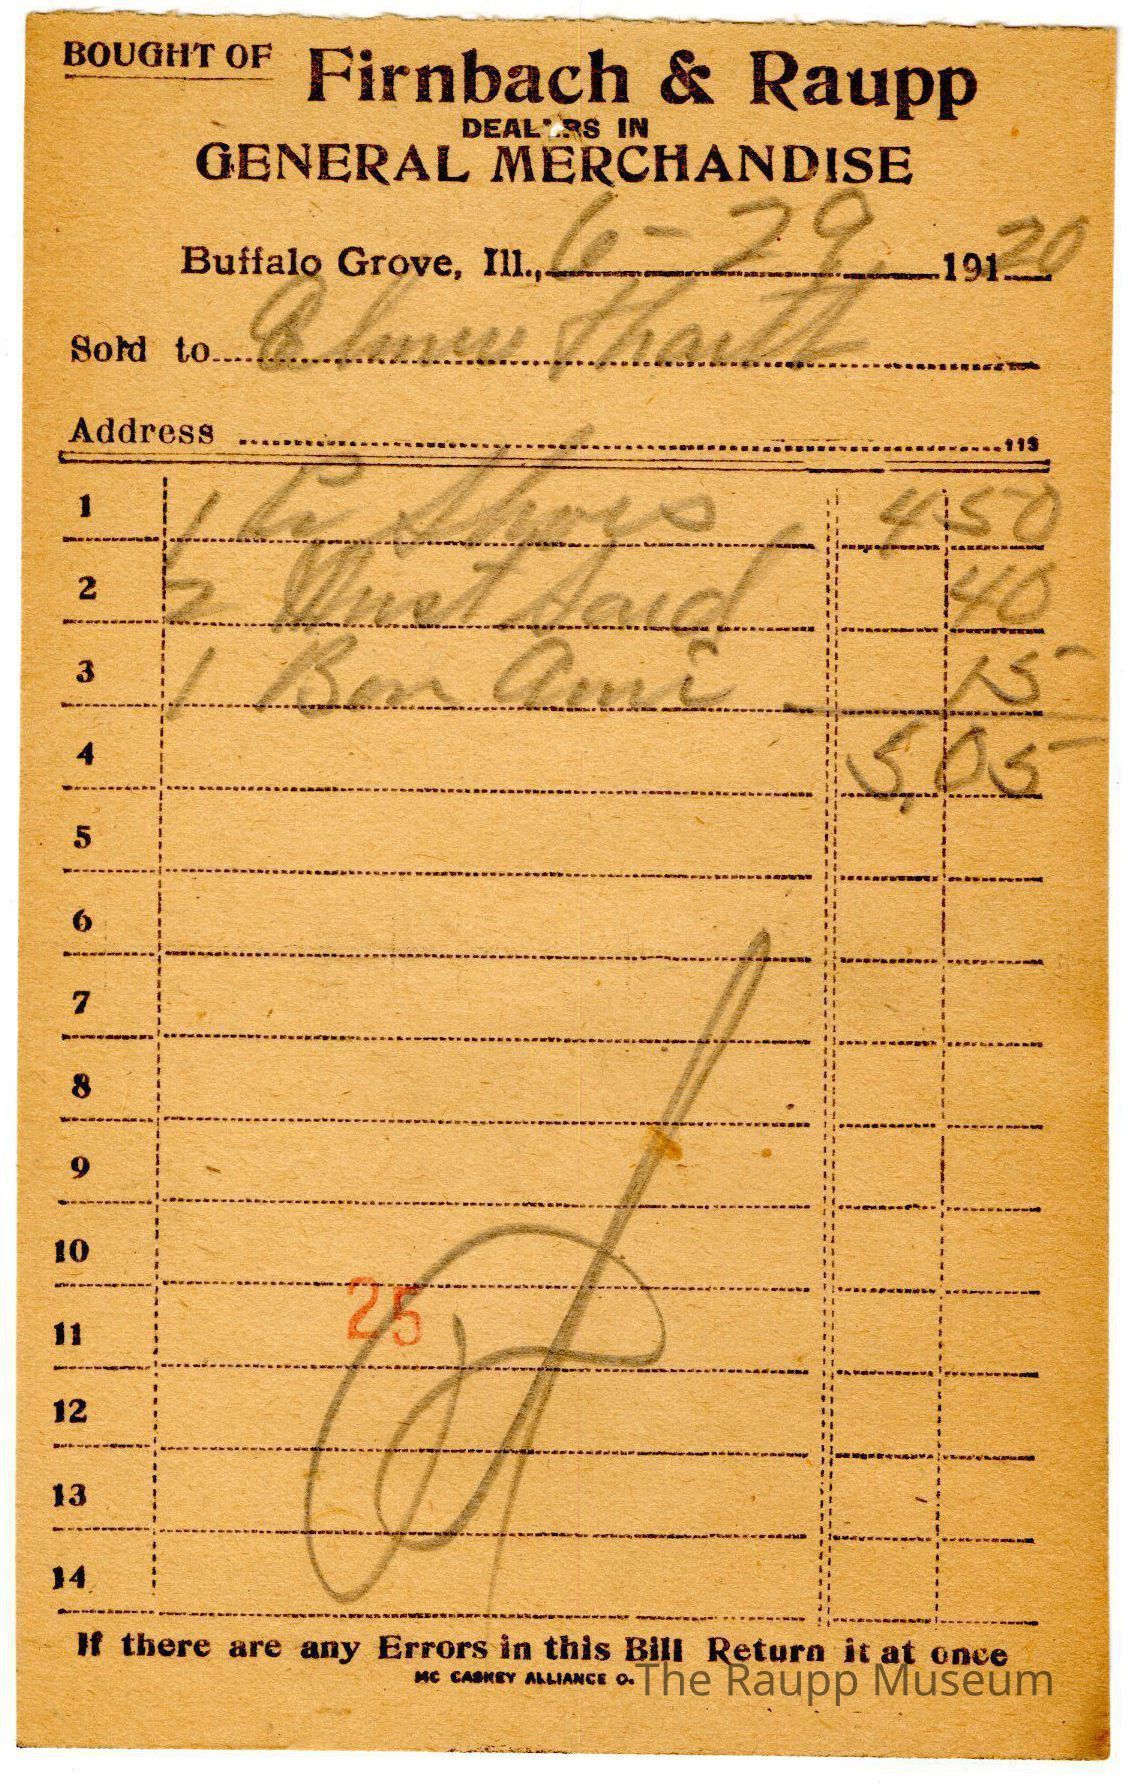 BOUGHT OF Firnbach & Raupp
DEALERS IN
GENERAL MERCHANDISE
Buffalo Grove, Ill., 6-29. 191 20
Sold to Elmer
Address 113
1 1 Pr Shoes 4 50
2 2 40
3 1 Bon Ami 15
4 5,05
5
6
7
8
9
10
25
11
12
13
14
If there are any Errors in this Bill Return it at once
MC CASKEY ALLIANCE O.
The Raupp Museum